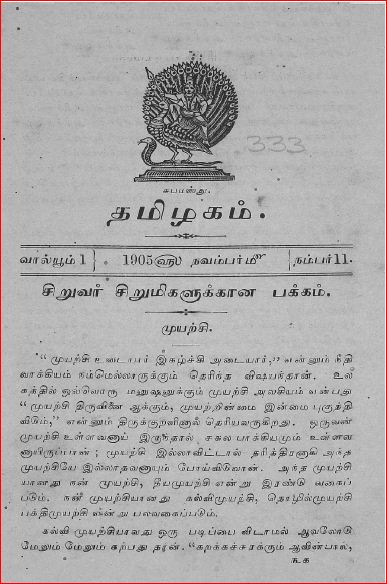 333
சுபமஸ்து.
தமிழகம்.
வால்யூம் 1 } 1905ஹு நவம்பர்மீ { நம்பர் 11.
சிறுவர் சிறுமிகளுக்கான பக்கம்.
முயற்சி.
“முயற்சி உடையார் இகழ்ச்சி அடையார்,” என்னும் நீதி
வாக்கியம் நம்மெல்லாருக்கும் தெரிந்த விஷயந்தான். உல
கத்தில் ஒவ்வொரு மனுஷனுக்கும் முயற்சி அவசியம் என்பது
“முயற்சி திருவினை ஆக்கும், முயற்றின்மை இன்மை புகுத்தி
விடும்,” என்னும் திருக்குறளினால் தெரியவருகிறது. ஒருவன்
முயற்சி உள்ளவனாய் இருந்தால், சகல பாக்கியமும் உள்ளவ
னாயிருப்பான்; முயற்சி இல்லாவிட்டால் தரித்திரனாகி அந்த
முயற்சியே இல்லாதவனாயும் போய்விடுவான். அந்த முயற்சி
யானது நன் முயற்சி, தீயமுயற்சி என்று இரண்டு வகைப்
படும். நன் முயற்சியானது கல்விமுயற்சி, தொழில்முயற்சி
பக்திமுயற்சி என்று பலவகைப்படும்.
கல்வி முயற்சியாவது ஒரு படிப்பை விடாமல் ஆவலோடு
மேலும் மேலும் கற்பது தான். “கறக்கச்சுரக்கும் ஆவின்பால்,
௩௧